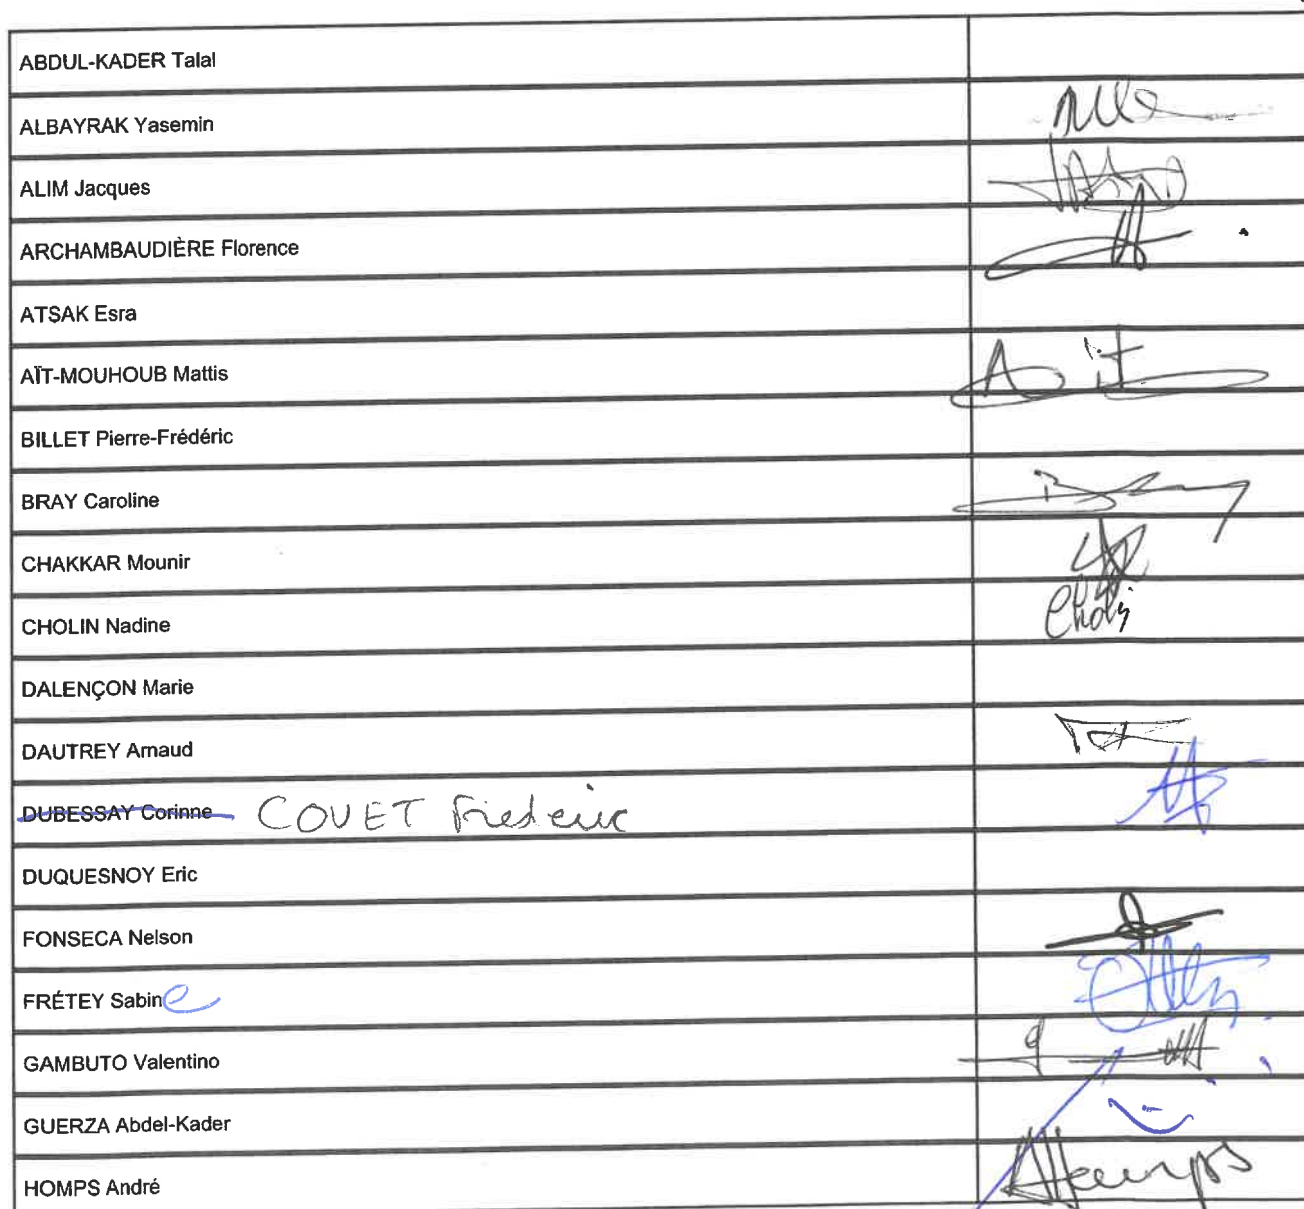 ABDUL-KADER Talal
ALBAYRAK Yasemin
ALIM Jacques
ARCHAMBAUDIÈRE Florence
ATSAK Esra
AÏT-MOUHOUB Mattis
Aït
BILLET Pierre-Frédéric
BRAY Caroline
CHAKKAR Mounir
CHOLIN Nadine
DALENÇON Marie
DAUTREY Arnaud
DUBESSAY Corinne COUET Frederic
DUQUESNOY Eric
FONSECA Nelson
FRÉTEY Sabine
GAMBUTO Valentino
GUERZA Abdel-Kader
HOMPS André